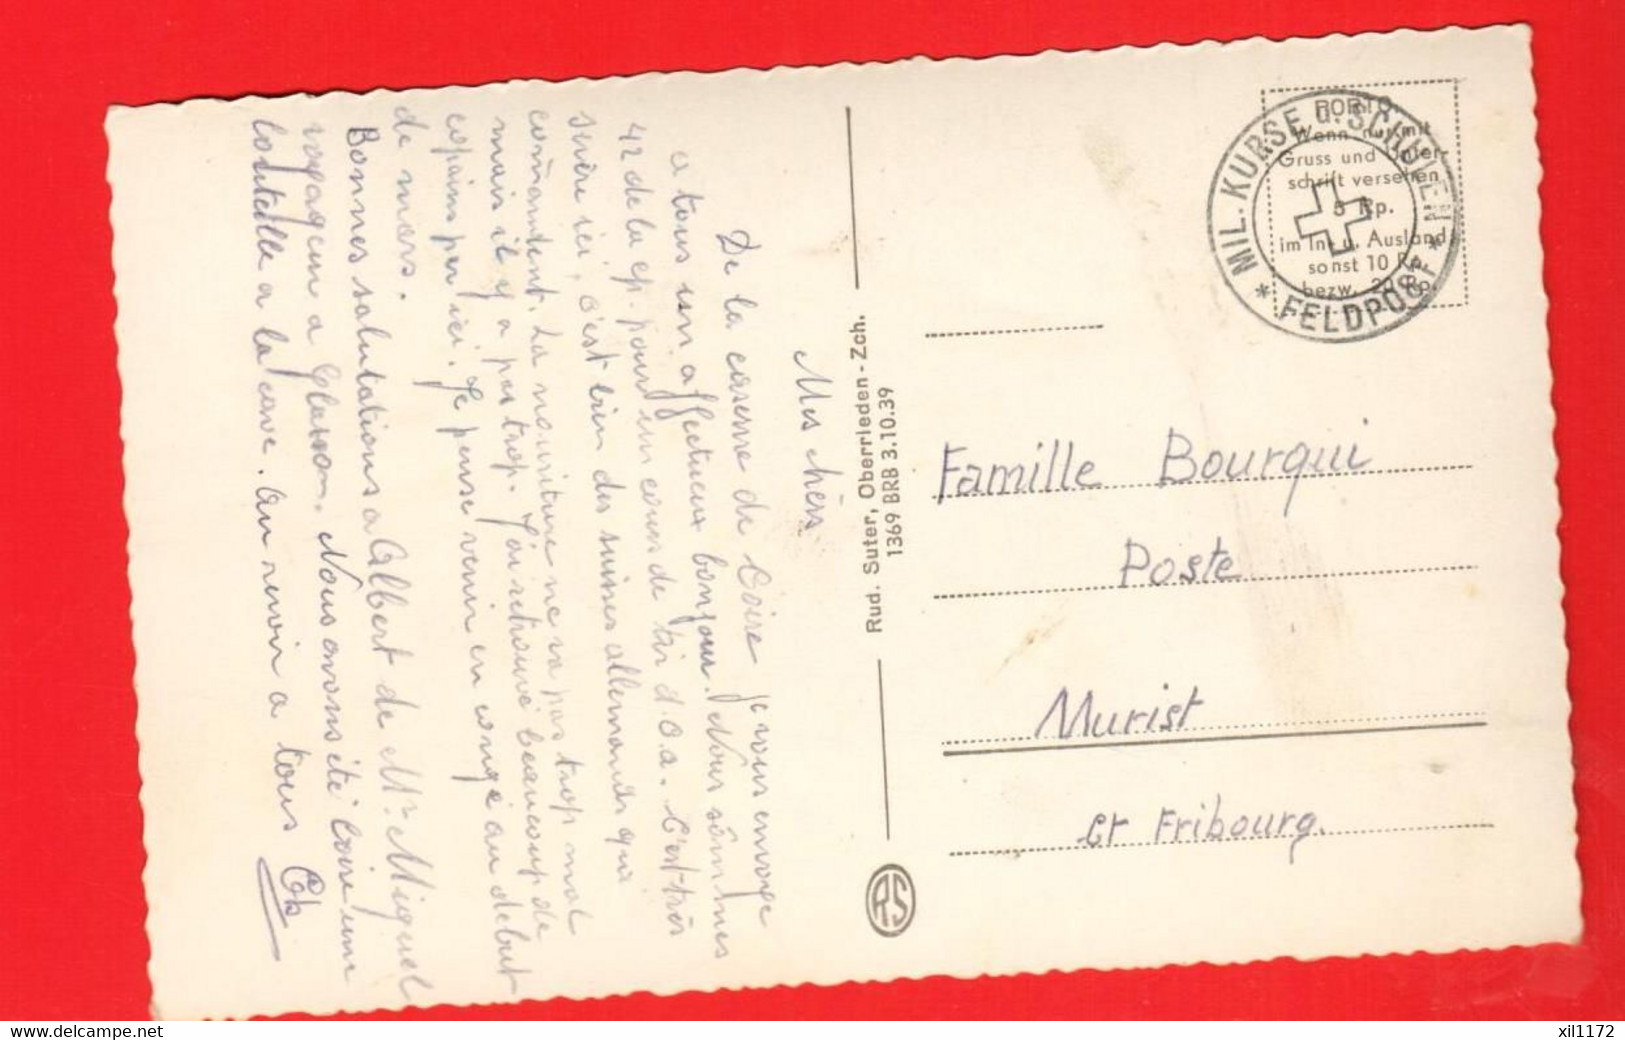 Mes chers
De la caserne de Coire je vous envoye
a tous un affectueux bonjour. Nous sômmes
42 de la cp. pour un cours de tir d.c.a. C'est très
sévère ici, c'est bien des suisses allemands qui
commandent. La nouriture ne va pas trop mal
mais il y a pas trop. J'ai retrouvé beaucoup de
copains par ici. Je pense venir en congé au debut
de mars.
Bonnes salutations a Albert de Mr Miguel
a Nous avons été boire une
bouteille a la cave. Au revoir a tous
PORTO
Wenn nur mit
Gruss und Unter-
schrift versehen
5 Rp.
im In- u. Ausland
sonst 10 Rp.
bezw. 20 Rp.
MIL. KURSE U. SCHULEN
* FELDPOST *
Rud. Suter, Oberrieden - Zch.
1369 BRB 3.10.39
RS
Famille Bourqui
Poste
Murist
Ct Fribourg.
www.delcampe.net
xil1172